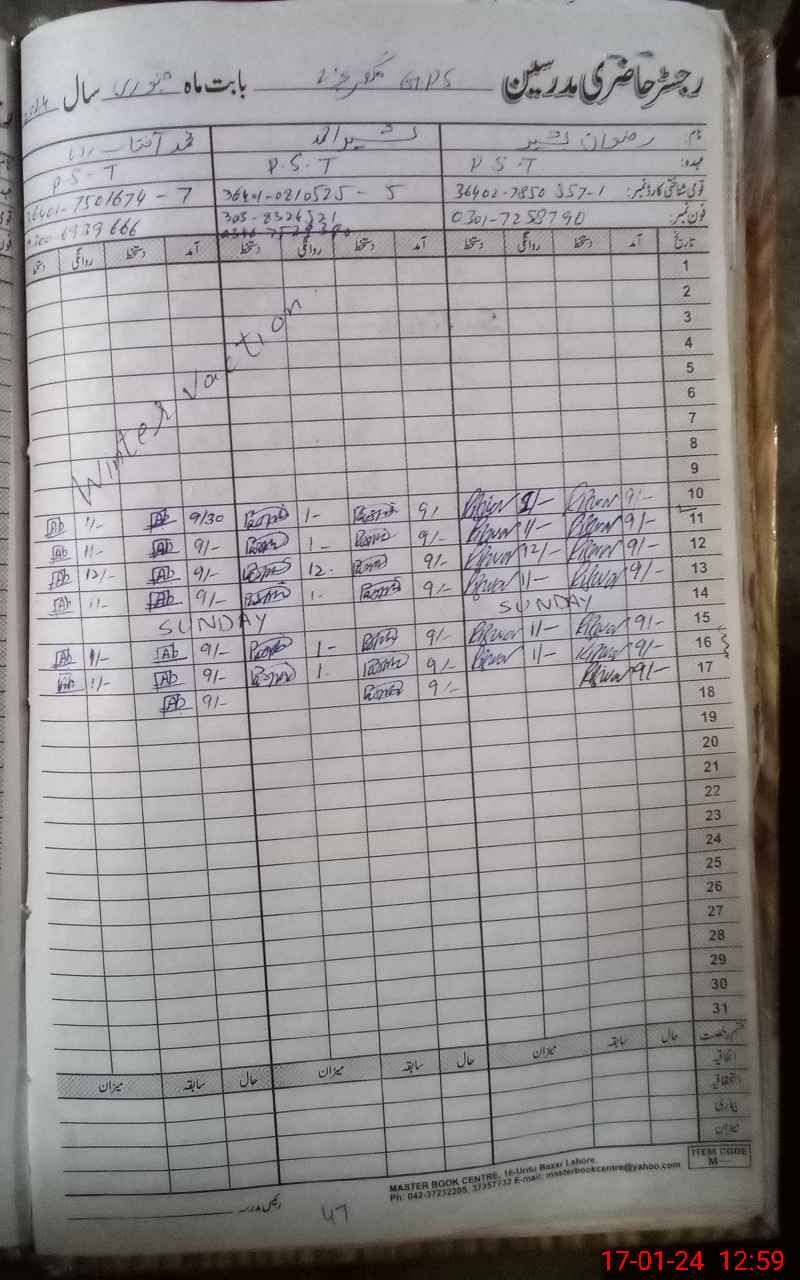 رجسٹر حاضری مدرسین GPS بابت ماہ جنوری سال
نام: رضوان بشیر بشیر احمد محمد آفتاب
عہدہ: P.S.T P.S.T P.S.T
قومی شناختی کارڈ نمبر: 36402-7850357-1 36401-0810525-5 36401-7501674-7
فون نمبر: 0301-7258790 303-8324521 0300-6939666
تاریخ آمد دستخط روانگی دستخط آمد دستخط روانگی دستخط آمد دستخط روانگی دستخط
1
2
3
4
5
6
7
8
9
Winter Vaction
10 9/- 9/ 1- 9/30 Ab 1/- Ab
11 9/- 1/- 9/- 1- 9/- Ab 1/- Ab
12 9/- 12/- 9/- 12- 9/- Ab 12/- Ab
13 9/- 1/- 9/- 1- 9/- Ab 1/- Ab
14 SUNDAY SUNDAY
15 9/- 1/- 9/- 1- 9/- Ab 1/- Ab
16 9/- 1/- 9/- 1- 9/- Ab 1/- Ab
17 9/- 9/- 9/- Ab
18
19
20
21
22
23
24
25
26
27
28
29
30
31
قسم رخصت حال سابقہ میزان حال سابقہ میزان حال سابقہ میزان
اتفاقیہ
استحقاقیہ
بیماری
میزان
ITEM CODE
M—
MASTER BOOK CENTRE, 16-Urdu Bazar Lahore.
Ph: 042-37232205, 37357732 E-mail: masterbookcentre@yahoo.com
رئیس مدرسہ
47
17-01-24 12:59